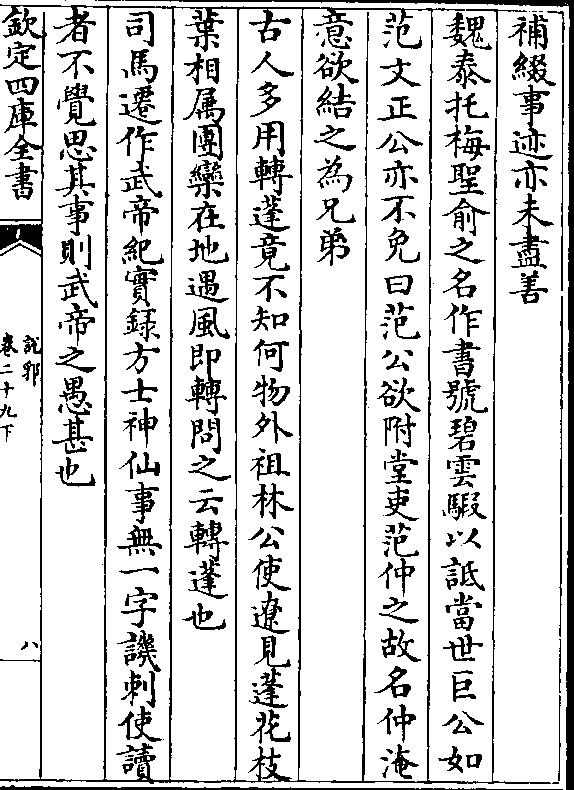 補綴事迹亦未盡善
魏泰托梅聖俞之名作書號碧雲騢以詆當世巨公如
范文正公亦不免曰范公欲附堂吏范仲之故名仲淹
意欲結之為兄弟
古人多用轉蓬竟不知何物外祖林公使遼見蓬花枝
葉相属團欒在地遇風即轉問之云轉蓬也
司馬遷作武帝紀實録方士神仙事無一字譏刺使讀
者不覺思其事則武帝之愚甚也
欽定四庫全書
說郛
卷二十九下
八